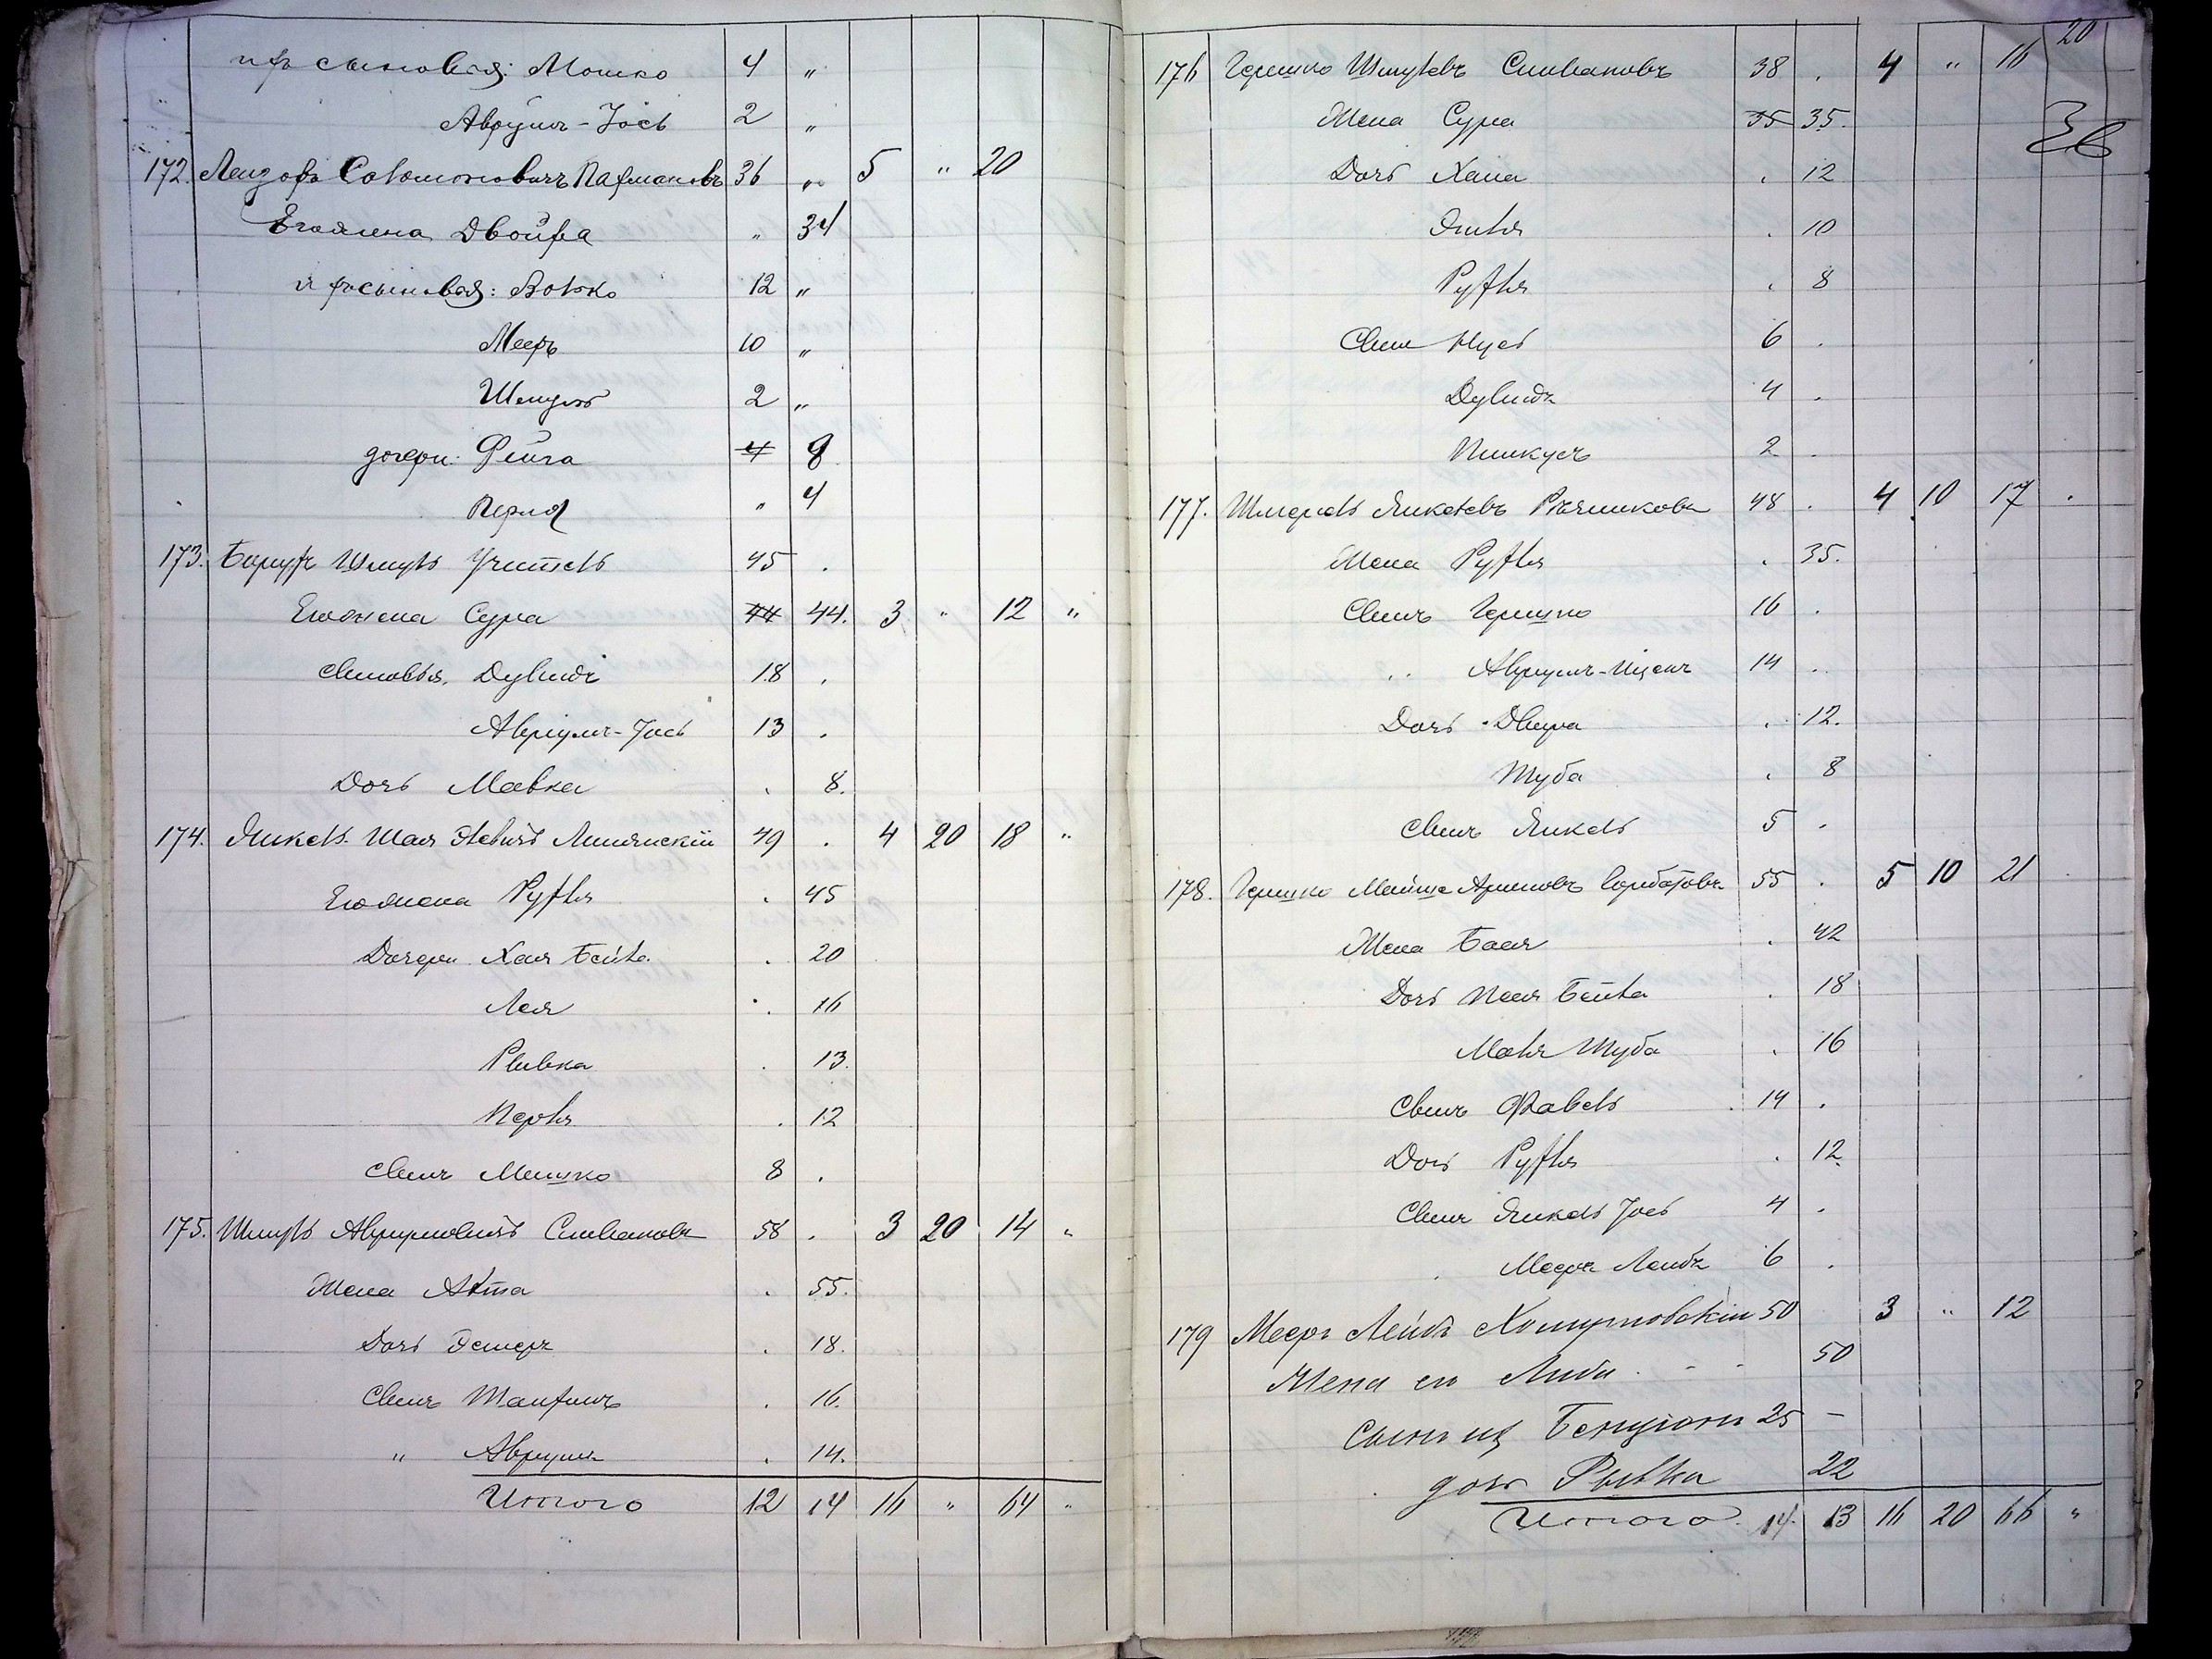 ихъ сыновья: Мошко 4 "
Аврумъ-Іось 2 "
172. Лейзоръ Соломоновичъ 36 " 5 " 20
Его жена Двойра " 34
ихъ сыновья: Волько 12 "
Мееръ 10 "
Шмуль 2 "
дочери: Фейга 4 8
Перля " 4
173. Борухъ Шмуль Учитель 45 .
Его жена Сура 44 44. 3 " 12 "
Сыновья, Дувидъ 18 .
Аврумъ-Іось 13 .
Дочь Малка . 8.
174. Янкель-Шая 49 . 4 20 18 "
Его жена Рухля . 45
Дочери Хая Бейла . 20
Лея . 16
Ривка . 13.
Перля . 12
Сынъ Мошко 8 .
175. Шмуль Аврумовичъ Сливановъ 58 . 3 20 14 "
Жена Алта . 55.
Дочь Эстеръ . 18.
Сынъ Танхумъ . 16.
" Аврумъ . 14.
Итого 12 14 16 " 64 "
20
176 Гершко Шмулевъ Сливановъ 38 . 4 " 16
Жена Сура 35 35.
Дочь Хана . 12
Этля . 10
Рухля . 8
Сынъ Нусь 6 .
Дувидъ 4 .
Пинкусъ 2 .
177. Шмерель Янкелевъ 48 . 4 10 17 .
Жена Рухля . 35.
Сынъ Гершко 16 .
" Аврумъ-Ицекъ 14 .
Дочь Двера . 12.
Туба . 8
Сынъ Янкель 5 .
178. Гершко Мойше Ароновъ Горбатовъ 55 . 5 10 21
Жена Бася . 42
Дочь Песя Бейла . 18
Маля Туба . 16
Сынъ Файвель 14 .
Дочь Рухля . 12.
Сынъ Янкель Іось 4 .
Мееръ Лейбъ 6 .
179 Мееръ Лейбъ 50 3 " 12
Жена его Либа 50
Сынъ ихъ Бенціонъ 25 -
дочь Рывка 22
Итого. 14. 13 16 20 66 "